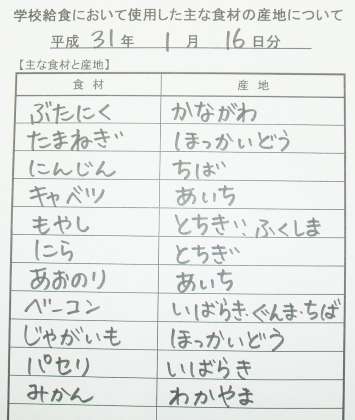 学校給食において使用した主な食材の産地について
平成 31 年 1 月 16 日分
【主な食材と産地】
食材 産地
ぶたにく かながわ
たまねぎ ほっかいどう
にんじん ちば
キャベツ あいち
もやし とちぎ、ふくしま
にら とちぎ
あおのり あいち
ベーコン いばらき・ぐんま・ちば
じゃがいも ほっかいどう
パセリ いばらき
みかん わかやま